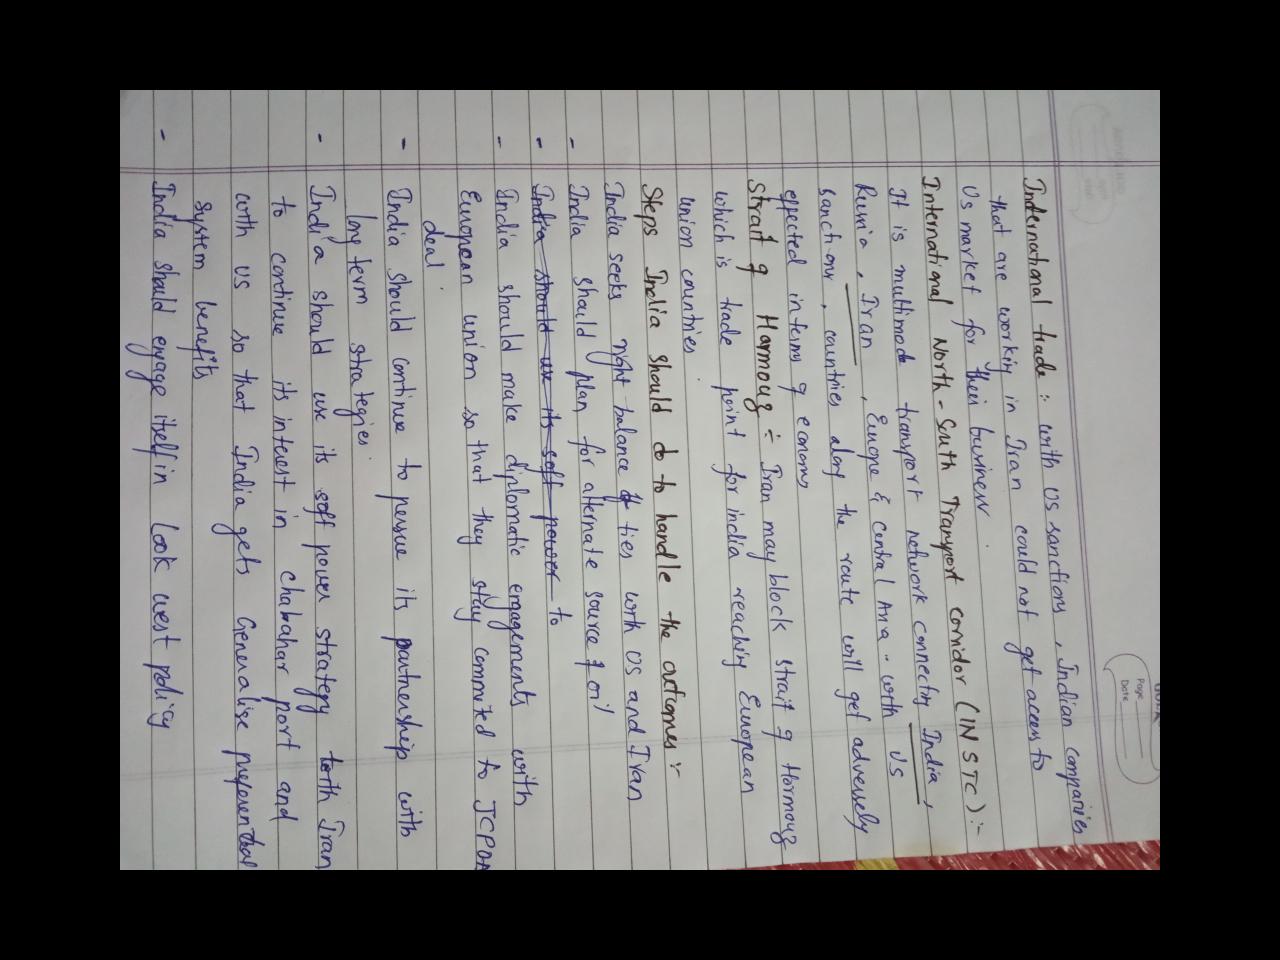 Page
Date
International trade :- with US sanctions, Indian companies
that are workin in Iran could not get access to
Us market for their business.
International North-South Transport corridor (INSTC) :-
It is multimode transport network connecting India,
Russia, Iran, Europe & Central Asia. with US
sanctions, countries along the route will get adversely
effected interms of economy
Strait of Harmouz :- Iran may block strait of Hormouz
which is trade point for india reaching European
union countries.
Steps India should do to handle the outcomes :-
India seeks right balance of ties with US and Iran
- India should plan for alternate source of oil
- India should use its soft power to
- India should make diplomatic engagements with
European union so that they stay commited to JCPOA
deal.
- India should continue to persue its partnership with
long term strategies.
- India should use its soft power strategy toth Iran
to continue its interest in chabahar port and
with US so that India gets Generalise preferential
system benefits
- India should engage itself in Look west policy